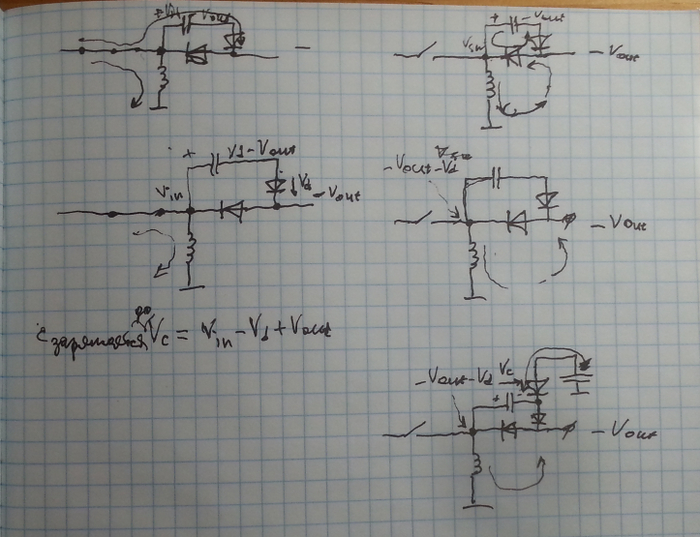 + Vin Vout
−
+ − Vout
Vin
− Vout
+ Vd − Vout
Vin
↓ Vd
− Vout
− Vout − Vd
− Vout
C заряжается до Vc = Vin − Vd + Vout
− Vout − Vd Vc
+ −
− Vout